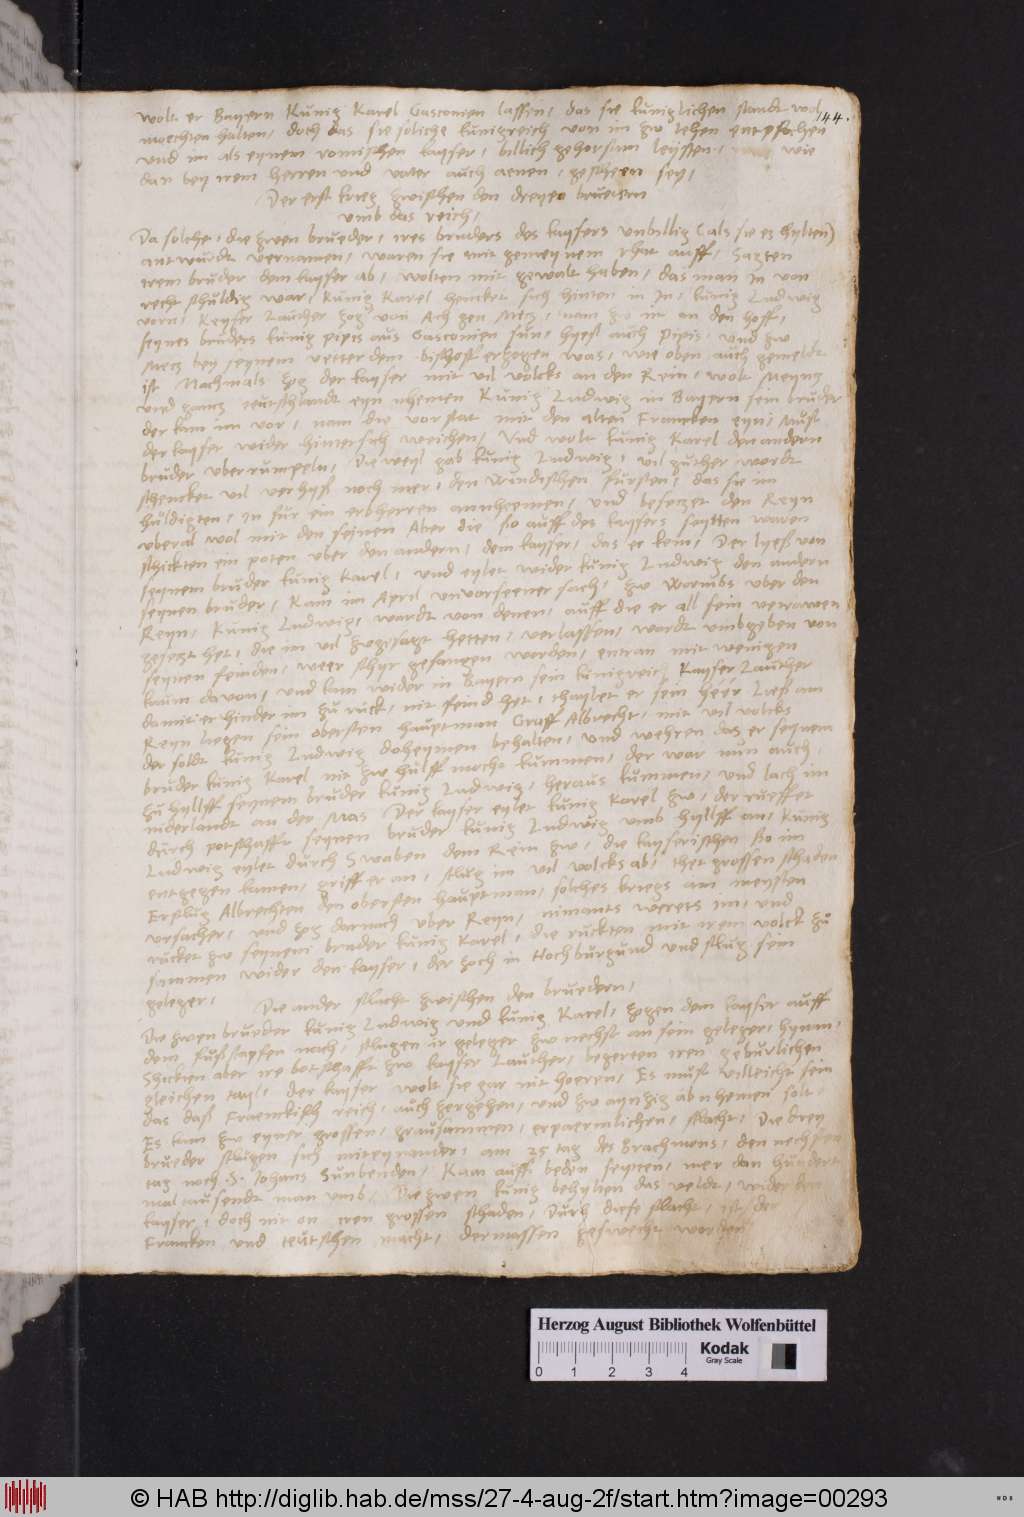 wolt er Bayern Künig Karel Gasconien lassen, das sie küniglichen standt wol 144.
moechten halten, doch das sie soliche künigreich von im zw lehen entpfachen
und im als eynem romischen kayser, billich gehorsam leyssten, wie
dan bey irem herren und vater auch aenen, gescheen sey,
Der erst krieg zwischen den dreyen bruedern
umb das reich,
Da solche, die zwen brueder, ires bruders des kaysers unbillig (als sie es hylten)
antwurdt vernamen, waren sie mit gemeynem rhat auff, Sagten
irem bruder dem kayser ab, wolten mit gewalt haben, das man In von
recht schuldig war, Künig Karel hencket sich hinten in In, künig Ludwig
vorn, Keyser Laucher zog von Ach gen Metz, nam zw im an den hoff,
seynes bruders künig pipis aus Gasconien sun, hyess auch Pipis, und zw
Metz bey seynem vetter dem bischoff erzogen was, wie oben auch gemeldt
ist Nachmals zog der kayser mit vil volcks an den Rein, wolt Meyntz
und gantz teutschlandt eyn nhemen Künig Ludwig in Bayern sein bruder
der kam im vor, nam die vorstat mit den alten Francken eyn, Must
der kayser wider hintersich weichen, Und wolt künig Karel den andern
bruder uberrumpeln, Die weyl gab künig Ludwig, vil guther wordt
schencket vil verhyß noch mer, den Windischen fürsten, das sie im
huldigten, In für ein erbherren annhemen, und besetzet den Reyn
uberal wol mit den seinen Aber die so auff des kaysers seytten waren
schickten ein poten uber den andern, dem kayser, das er kem, Der lyeß von
seynem bruder künig Karel, und eylet wider künig Ludwig den andern
seynen bruder, Kam im April unvorseener sach, zw Wormbs uber den
Reyn, Künig Ludwig, wardt von denen, auff die er all sein vertrawen
gesetzt het, die im vil zwgesagt hetten, verlassen, wardt umbgeben von
seynen feinden, weer schyr gefangen worden, entran mit wenigen
kaum davon, und kam wider in Bayern sein künigreich Kayser Lauther
damit er hinder im zu rück, nit feind het, thaylet er sein heer Ließ am
Reyn liegen sein obersten hauptman Graff Albrecht, mit vil volcks
der soldt künig Ludwig doheymen behalten, und wehren das er seynem
bruder künig Karel nit zw hülff mocht kummen, der war nun auch
zu hylff seynem bruder künig Ludwig, heraus kummen, und lach im
niderlandt an der Mas Der kayser eylet künig Karel zw, der rueffet
durch potschafft seynen bruder künig Ludwig umb hylff an, Künig
Ludwig eylet durch Swaben dem Rein zw, die kayserischen so im
entgegen kamen, griff er an, schlug im vil volcks ab, thet grossen schaden
Erschlug Albrechten den obersten hauptman, solches kriegs am meysten
ursacher, und zog darnach uber Reyn, nimants werets im, und
rücket zw seynem bruder künig Karel, die rückten mit irem volck zu
sammen wider den kayser, der zoch in Hochburgund und schlug sein
geleger,
Die ander schlacht zwischen den bruedern,
Die zwen brueder künig Ludwig und künig Karel, zogen dem kayser auff
dem fußstapfen nach, schlugen ir geleger zw nechst an sein geleger hynan,
Shickten aber ire botschafft zw kayser Laucher, begerten iren geburlichen
gleichen tayl, der kayser wolt sie gar nit hoeren, Es must villeicht sein
das daß Franckisch reich, auch zergehen, und zw aynzig abnhemen solt,
Es kam zw eyner grossen, grausammen, erpaermlichen, schlacht, Die drey
brueder schlugen sich miteynander, am 25 tag des Brachmons, den nechsten
tag noch S. Johans Sunbenden, Kam auff beden seytten, mer dan hundert
mal tausendt man umb, Die zwen künig behylten das veldt, wider den
kayser, doch nit on iren grossen schaden, Durch diese schlacht, ist der
Francken und teutschen macht, dermassen geswecht worden
Herzog August Bibliothek Wolfenbüttel
Kodak
Gray Scale
0 1 2 3 4
© HAB http://diglib.hab.de/mss/27-4-aug-2f/start.htm?image=00293